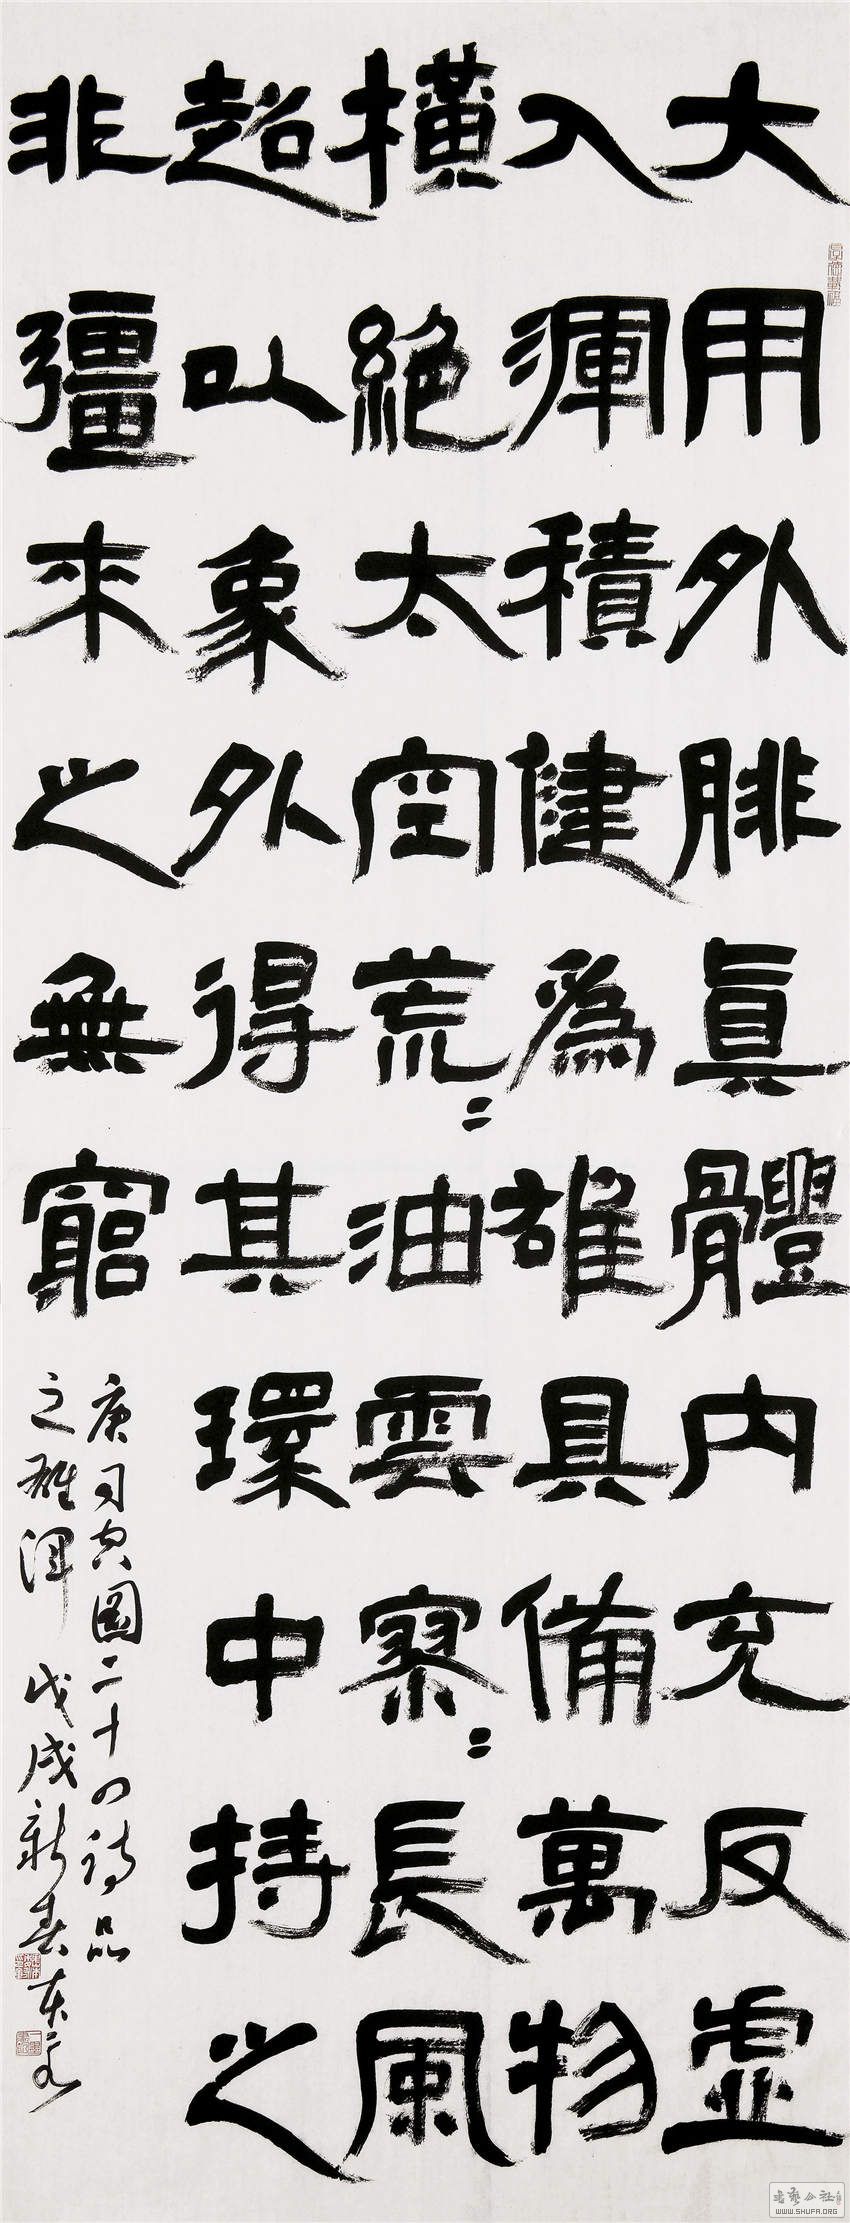 大用外腓眞體內充反虛
入渾積健爲雄具備萬物
橫絕太空荒〻油雲寥〻長風
超以象外得其環中持之
非彊來之無窮
唐司空圖二十四詩品
之雄渾 戊戌新春東
書藝公社
WWW.SHUFA.ORG